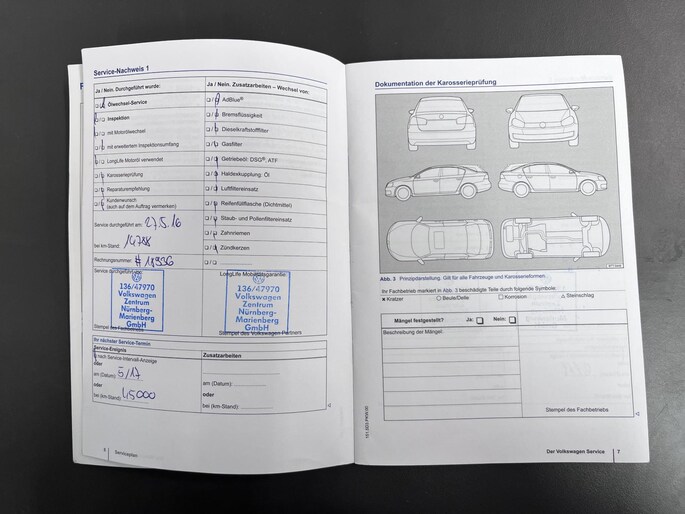 Service-Nachweis 1
Ja / Nein. Durchgeführt wurde:
Ölwechsel-Service
Inspektion
mit Motorölwechsel
mit erweitertem Inspektionsumfang
LongLife Motoröl verwendet
Karosserieprüfung
Reparaturempfehlung
Kundenwunsch
(auch auf dem Auftrag vermerken)
Service durchgeführt am: 27.5.16
bei km-Stand: 14788
Rechnungsnummer: # 18936
Service durchgeführt von:
136/47970
Volkswagen
Zentrum
Nürnberg-
Marienberg
GmbH
Stempel des Fachbetriebs
Ja / Nein. Zusatzarbeiten – Wechsel von:
AdBlue®
Bremsflüssigkeit
Dieselkraftstofffilter
Gasfilter
Getriebeöl: DSG®, ATF
Haldexkupplung: Öl
Luftfiltereinsatz
Reifenfüllflasche (Dichtmittel)
Staub- und Pollenfiltereinsatz
Zahnriemen
Zündkerzen
LongLife Mobilitätsgarantie:
136/47970
Volkswagen
Zentrum
Nürnberg-
Marienberg
GmbH
Stempel des Volkswagen Partners
Ihr nächster Service-Termin
Service-Ereignis
nach Service-Intervall-Anzeige
oder
am (Datum): 5/17
oder
bei (km-Stand): 45000
Zusatzarbeiten
am (Datum):
oder
bei (km-Stand):
6 Serviceplan
Dokumentation der Karosserieprüfung
Abb. 3 Prinzipdarstellung. Gilt für alle Fahrzeuge und Karosserieformen.
Ihr Fachbetrieb markiert in Abb. 3 beschädigte Teile durch folgende Symbole:
× Kratzer ○ Beule/Delle □ Korrosion △ Steinschlag
Mängel festgestellt? Ja: Nein:
Beschreibung der Mängel:
Stempel des Fachbetriebs
Der Volkswagen Service 7